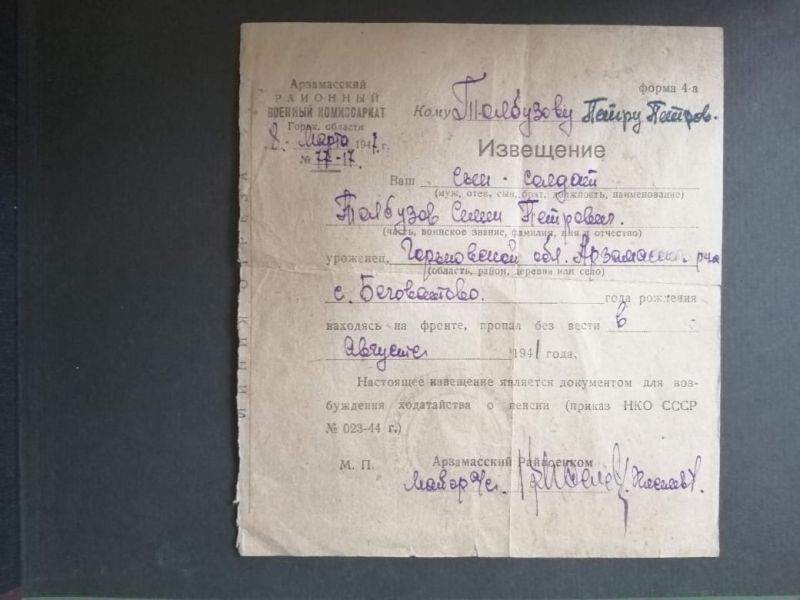 Арзамасский
РАЙОННЫЙ
ВОЕННЫЙ КОМИССАРИАТ
Горьк. области
8. Марта 1947 г.
№ 77-17
форма 4-а
Кому Толбузову Петру Петров.
Извещение
Ваш сын - солдат
(муж, отец, сын, брат, должность, наименование)
Толбузов Семён Петрович.
(часть, воинское звание, фамилия, имя и отчество)
уроженец, Горьковской обл. Арзамасск. р-на
(область, район, деревня или село)
с. Беговатово. года рождения
находясь на фронте, пропал без вести в
Августе 1941 года.
Настоящее извещение является документом для воз-
буждения ходатайства о пенсии (приказ НКО СССР
№ 023-44 г.)
М. П. Арзамасский Райвоенком
Майор